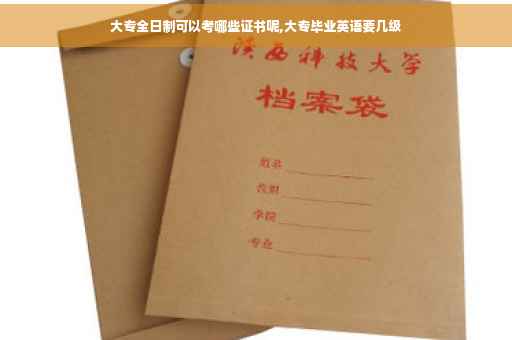 大专全日制可以考哪些证书呢,大专毕业英语要几级
陕西科技大学
档案袋
学院
专业